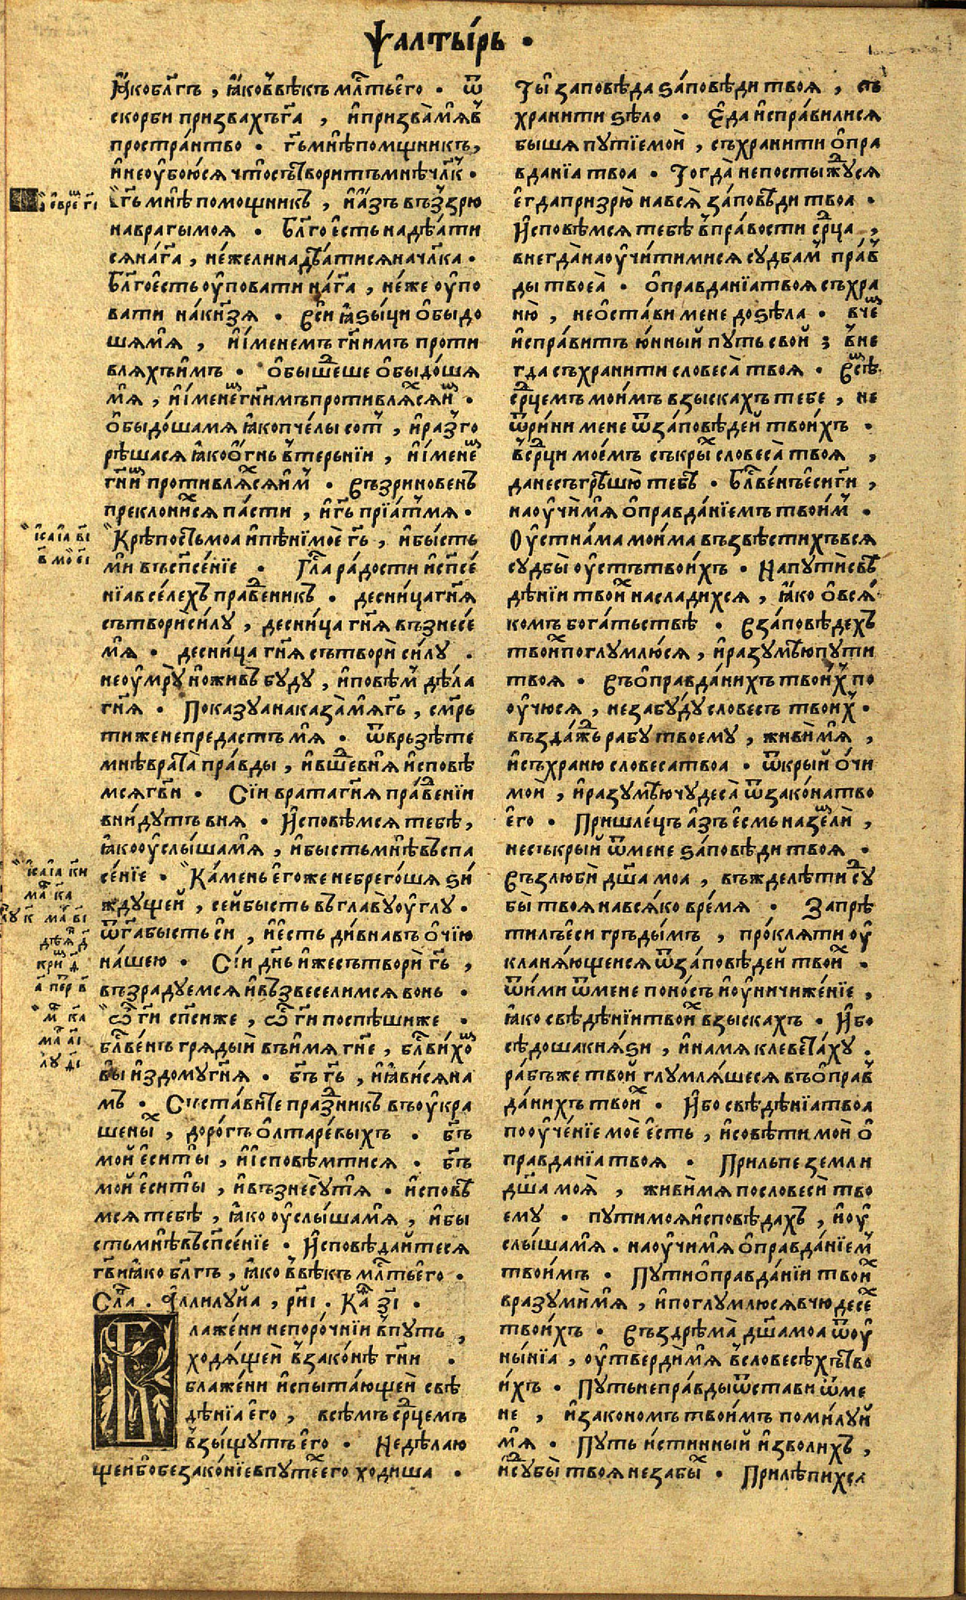 Ѱалты́рь ·
ꙗ҆́ко бл҃гъ , ꙗ҆́ко в̾вѣкъ мл҃ть є҆го̀ · ѿ
скорби призвахъ г҃а , и҆ призва́ мѧ в̾
простра́нтво · г҃ь мнѣ помѡщникъ ,
и҆ не оу҆бою́сѧ что̀ сътвори́тъ мнѣ чл҃къ ·
г҃ь мнѣ помощникъ , и҆ а҆́зъ въз̾зрю
на врагы моѧ · Бл҃го є҆́сть надѣ́ѧти
сѧ на́ г҃а , не́жели надѣ́ѧтисѧ на чл҃ка ·
бл҃го є҆сть оу҆повати на́ г҃а , не́же оу҆по
вати на́ кнѧ҃зѧ · вси ꙗ҆зы́ци ѻ҆быдо
шѧ мѧ̀ , и҆ и҆́менемъ гн҃имъ проти
влѧхъ и҆̀мъ · ѻ҆бышедше ѻ҆быдо́шѧ
мѧ̀ , и҆ и҆́менемъ гн҃имъ противлѧ́хсѧ и҆м ·
ѻ҆быдо́ша мѧ ꙗ҆́ко пче́лы сот , и҆ раз̾го
рѣшасѧ ꙗ҆́ко ѻ҆́гнь в̾ терьнїи , и҆ и҆́менем
гн҃им противлѧ́хсѧ и҆м · въз̾риновенъ
преклони́хсѧ па́сти , и҆ г҃ь прїѧ́т мѧ ·
Крѣ́пость моа и҆ пѣ́нїе моѐ г҃ь , и҆ бы́сть
ми въ сп҃се́нїе · гла́ ра́дости и҆ сп҃се́
нїа в се́лехъ пра́ведникъ · десни́ца гн҃ѧ
сътвори̂ си́лу , десни́ца гн҃ѧ възнесе́
мѧ · десни́ца гн҃ѧ сътвори̂ си́лу ·
не оу҆мрꙋ̀ но жив буду , и҆ повѣ́м дѣ́ла
гн҃ѧ · Показуа наказа́ мѧ г҃ь , смр҃
ти же не предасть мѧ · ѿврьзѣте
мнѣ врата̀ пра́вды , и҆ вшед в нѧ и҆сповѣ
мсѧ гв҃и · Сїи врата гн҃ѧ пра́веднїи
вни́дутъ в нѧ · И҆сповѣ́мсѧ тебѣ̀ ,
ꙗ҆́ко оу҆слы́ша мѧ , и҆ бы́сть мнѣ въ спа
се́нїе · Ка́мень є҆го́же небрего́шѧ ѕи
ждущеи , се́й бы́сть въ главꙋ̀ оу҆́глу ·
ѿ г҃а бысть си́ , и҆ є҆́сть ди́вна въ ѻ҆чїю
на́шею · Се́и дн҃ь и҆́же сътвори̂ г҃ь ,
възрадуемсѧ и҆ възвеселимсѧ во нь ·
Ѽ гн҃и сп҃си же , ѽ гн҃и поспѣ́ши же ·
бл҃ве́нъ грѧды́й въ и҆́мѧ гн҃е , бл҃ви́хом
вы и҆з до́му гн҃ѧ · бъ҃ г҃ь , и҆ ꙗ҆ви́сѧ на
мъ · Съста́вите пра́здникъ въ оу҆кра
ше́ных , до ро́гъ ѻ҆лтаре́выхъ · бъ҃
мо́й є҆сѝ ты̀ , и҆ и҆сповѣ́м ти сѧ · бъ҃
мо́й є҆сѝ ты̀ , и҆ възнесу́ тѧ · и҆сповѣ
мсѧ тебѣ̀ , ꙗ҆́ко оу҆слы́ша мѧ , и҆ бы
сть мнѣ въ сп҃се́нїе · И҆сповѣ́дайтесѧ
гв҃и ꙗ҆́ко бл҃гъ , ꙗ҆́ко в̾вѣ́къ мл҃ть є҆го̀ ·
Сла́ . А҆ллилу́йа , рн҃і . Ка́ѳ з҃і .
Блаже́ни непоро́чнїи в̾ пу́ть ,
ходѧ́щеи в̾ зако́нѣ гн҃и ·
блаже́ни и҆спыта́ющеи свѣ
дѣ́нїа є҆го̀ , всѣ́мъ ср҃цемъ
взы́щутъ є҆го̀ · Не дѣ́лаю
щеи бо беззако́нїе в путе́х єго̀ ходи́ша ·
є҆вре́ г҃і
и҆са́їа в҃і
в҃ мо е҃і
и҆са́їа к҃и
ма́ к҃а
лу́ к҃ ма́ в҃і
дѣ́ѧ д҃
кри д҃
а҃ пе́р в҃
м к҃а
ма́ а҃і
лу д҃і
Ты̀ заповѣ́да ѕа́повѣди твоѧ , съ
храни́ти ѕѣло · Є҆да и҆спра́вилисѧ
бы́шѧ пути́е мои̂ , съхрани́ти ѻ҆пра
вда́нїа твоа · Тогда̀ не посты́жусѧ
є҆гда призрю̀ на всѧ̀ за́повѣди твоа ·
И҆сповѣ́мсѧ тебѣ̀ в̾ пра́вости ср҃ца ,
внегда̀ наоу҆чи́ти ми сѧ судбам пра́в
ды твоеа̀ · ѻ҆правда́нїа твоѧ съхра
ню̀ , не ѻ҆ста́ви мене до ѕѣ́ла · в чем
и҆спра́витъ ю́нный пу́ть свой ; вне
гда съхрани́ти словеса̀ твоѧ · Всѣм
ср҃цемъ мои́мъ взыска́хъ тебе , не
ѿри́ни мене ѿ за́повѣдей твои́хъ ·
в̾ ср҃ци мое́мъ съкры́х словеса̀ твоѧ ,
да не съгрѣшю̀ тебѣ · бл҃ве́нъ є҆сѝ гн҃и ,
наоу҆чи́ мѧ ѻ҆правда́нїемъ твоим ·
Оу҆стна́ма мои́ма възвѣсти́хъ всѧ
судбы̀ оу҆стъ твои́хъ · На пути свѣ
дѣ́нїи твои́х наслади́хсѧ , ꙗ҆́ко ѻ҆ всѧ
комъ бога́тьствѣ · В за́повѣдехъ
твои́х поглумлю́сѧ , и҆ разумѣ́ю пути
твоѧ · Въ ѻ҆правда́нихъ твои́х по
оу҆чюсѧ , не забу́ду словесъ твои́х ·
възда́жь рабу твоему , живи́ мѧ ,
и҆ съхраню словеса твоа · ѿкрый ѻ҆́чи
мои̂ , и҆ разумѣ́ю чудеса̀ ѿ зако́на тво
є҆го · Пришле́цъ а҆́зъ є҆́смь на земли̂ ,
не съкрый ѿ мене ѕа́повѣди твоѧ ·
Възлюби̂ дш҃а моа , въжделѣти су
бы́ твоѧ на всѧ́ко вре́мѧ · Запрѣ
ти́лъ є҆си гръды́мъ , про́клѧти оу҆
кланѧ́ющеисѧ ѿ за́повѣдей твоих ·
ѿими ѿ мене поно́съ и҆ оу҆ничиже́нїе ,
ꙗ҆́ко свѣ́дѣнїи твои́х взыска́хъ · И҆́бо
сѣдо́ша кнѧ́ѕи , и҆ на мѧ клевета́ху ·
ра́бъ же твой глумлѧ́шесѧ въ ѻ҆прав
да́нихъ твоих · И҆́бо свѣдѣ́нїа твоа
по оу҆че́нїе мое є҆́сть , и҆ совѣ́ти мои ѻ҆
правда́нїа твоѧ · Прильпе земли
дш҃а моѧ̀ , живи́ мѧ по словеси̂ тво
єму · пути моѧ и҆сповѣ́дахъ , и҆ оу҆
слы́ша мѧ · наоу҆чи́ мѧ ѻ҆правда́нїем
твои́мъ · Пути ѻ҆правда́нїи твоих
вразуми̂ мѧ , и҆ поглумлю́сѧ в чюдесех
твои́хъ · Въздрѣма̀ дш҃а моа ѿ оу҆
ны́нїа , оу҆тверди̂ мѧ в̾ словесѣ́хъ тво
и́хъ · Пу́ть непра́вды ѿстави ѿ ме
не , и҆ зако́номъ твои́мъ поми́луй
мѧ · Пу́ть и҆́стинный и҆зво́лихъ ,
и҆ субы̀ твоѧ не забы́х · Прилѣпи́хсѧ